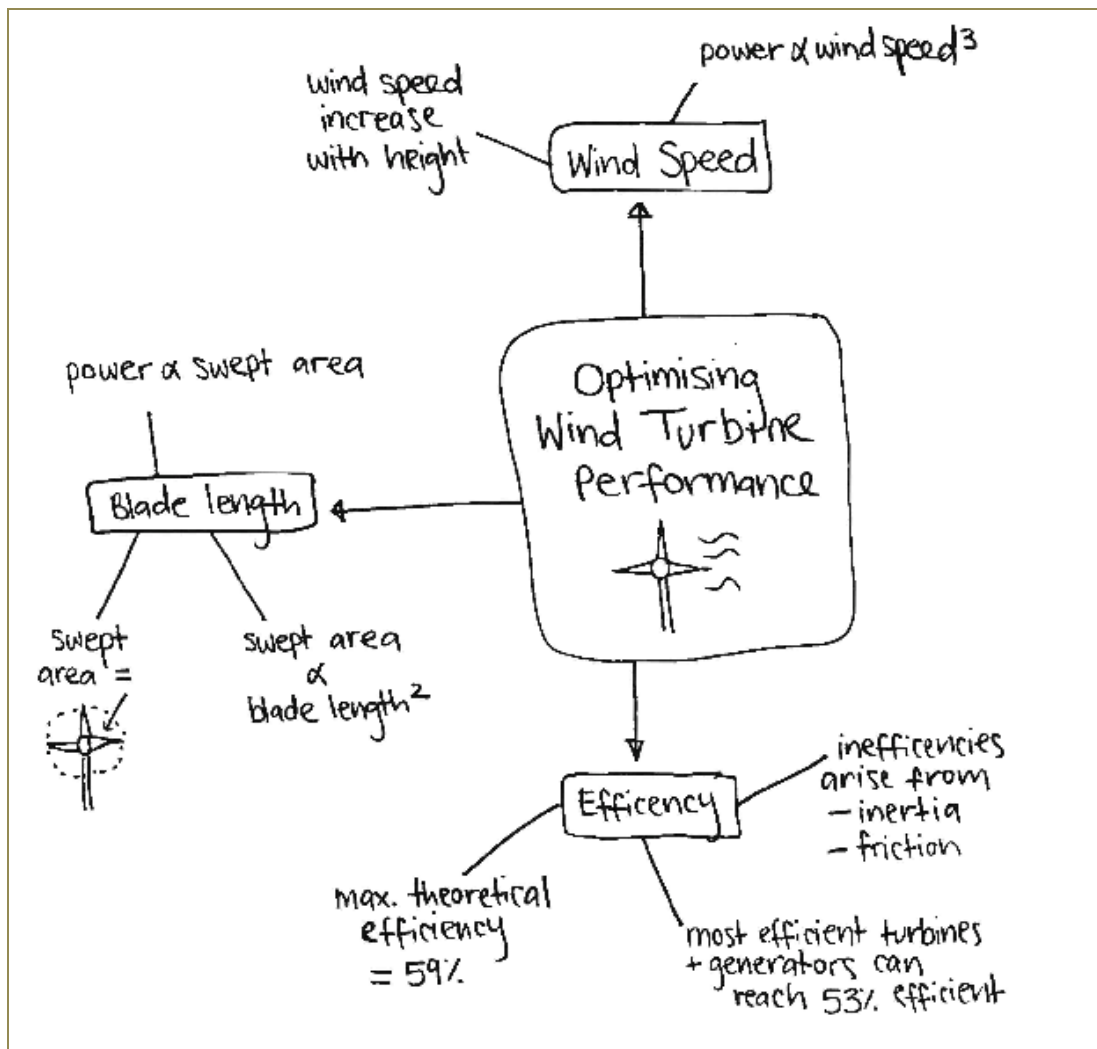 power ∝ wind speed³
wind speed
increase
with height
Wind Speed
Optimising
Wind Turbine
Performance
power ∝ swept area
Blade length
swept
area =
swept area
∝
blade length²
Efficency
inefficencies
arise from
- inertia
- friction
max. theoretical
efficiency
= 59%
most efficient turbines
+ generators can
reach 53% efficient